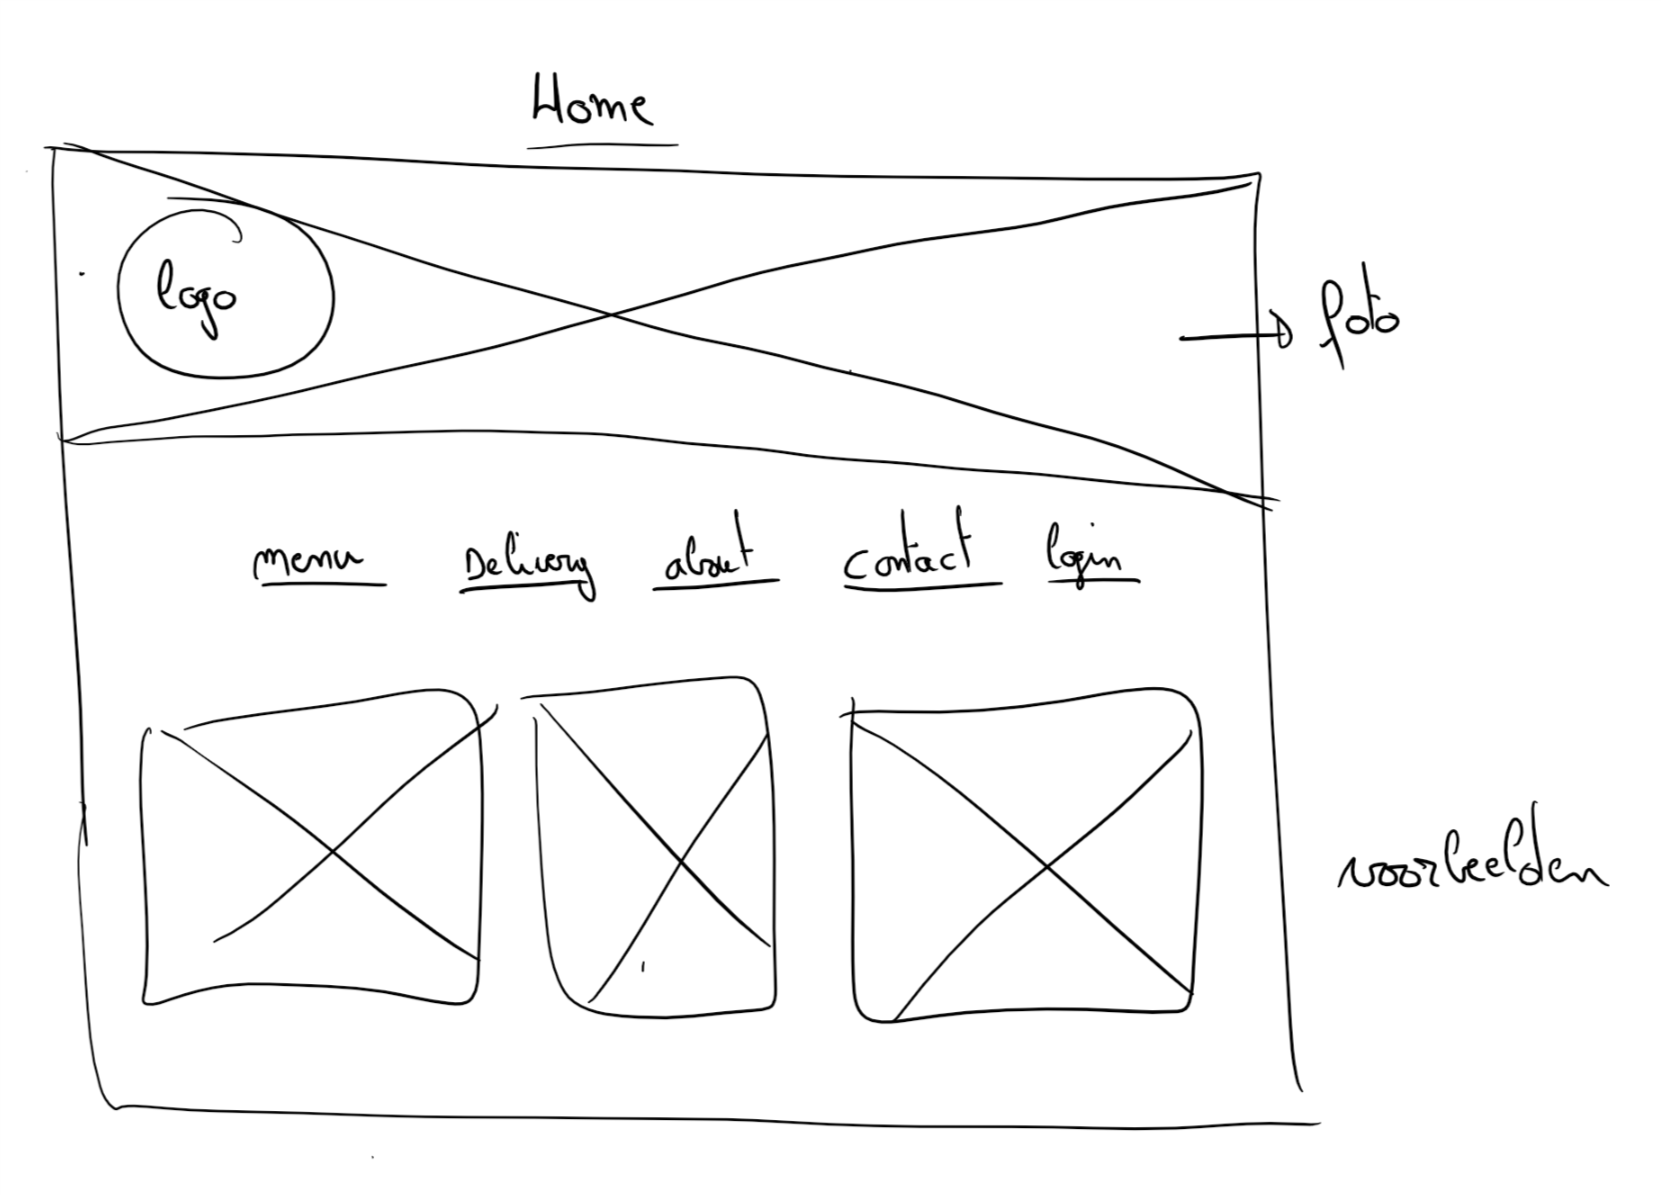 Home
logo
foto
menu Delivery about contact login
voorbeelden